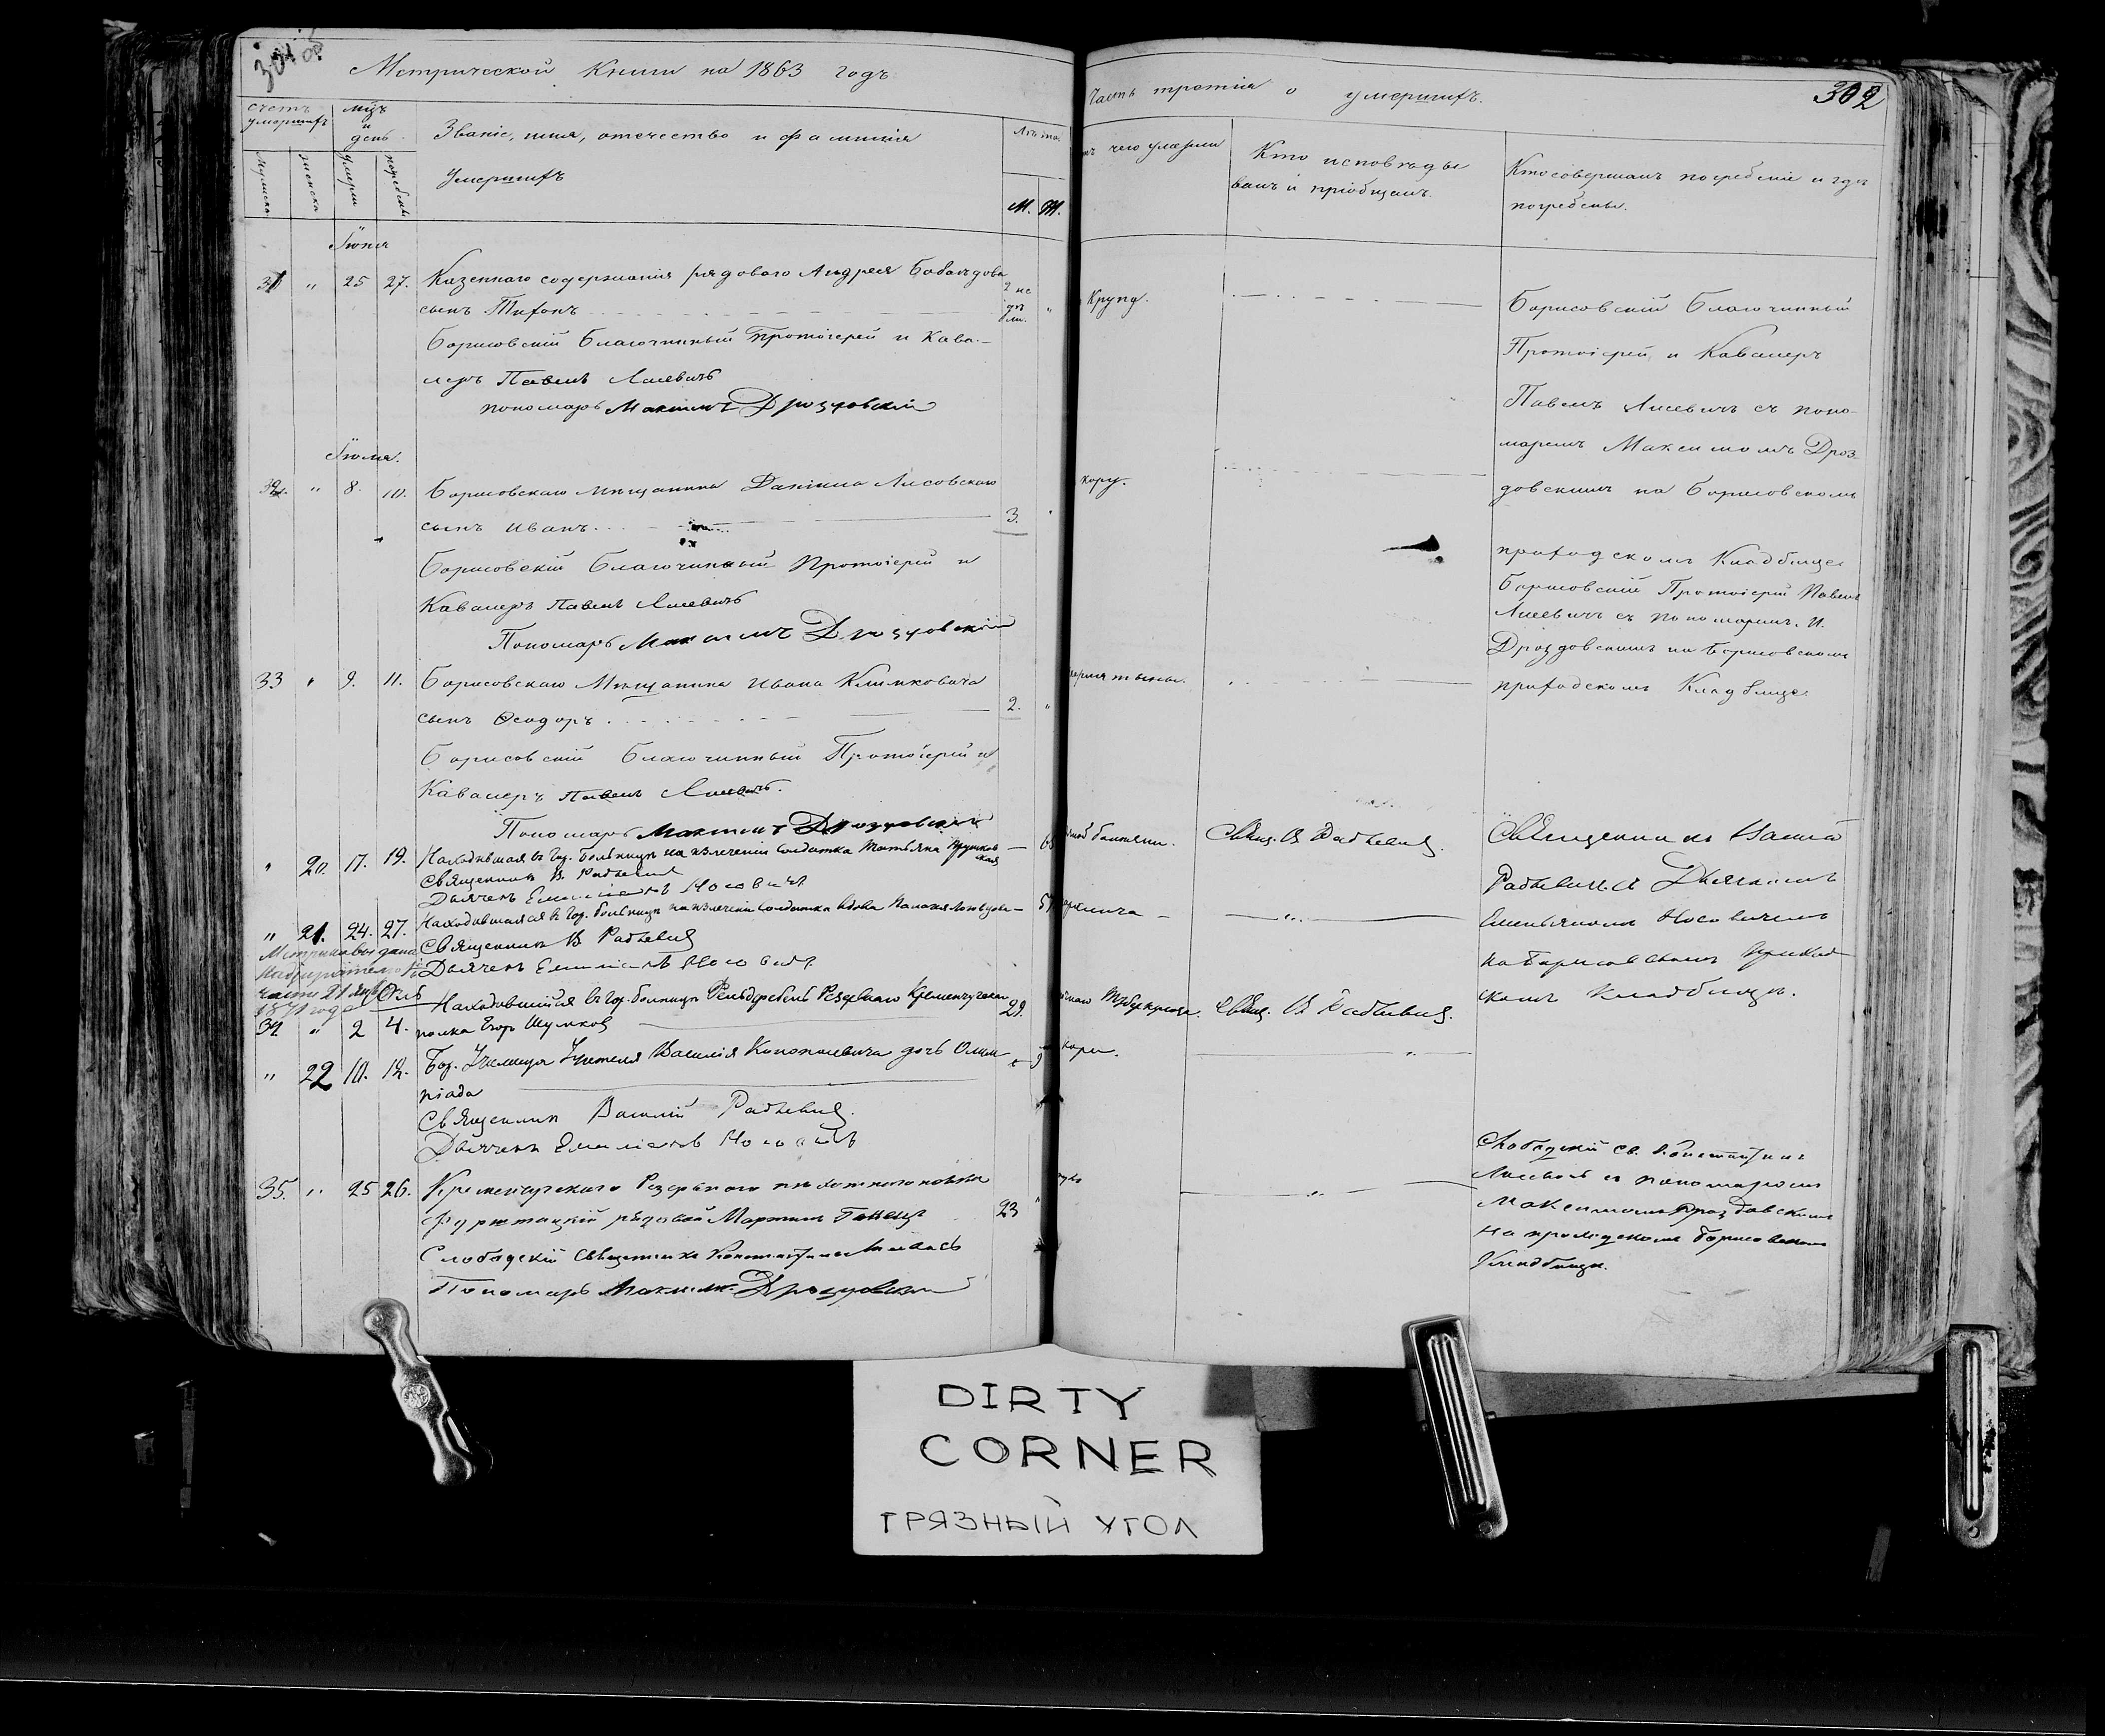 Метрической Книги на 1863 годъ
счетъ умершихъ
мѣц и день
Званіе, имя, отечество и фамилія
умершихъ
Лѣта
мужска
женска
умерли
погребены
М. Ж.
Іюня
31 " 25 27. Казеннаго содержанія рядоваго Андрея
сынъ Тихонъ
Борисовскій Благочинный Протоіерей и Кава-
леръ Павелъ Лисевичъ
пономарь Максимъ Дроздовскій
Іюля.
32. " 8. 10. Борисовскаго Мѣщанина Даніила Лисовскаго
сынъ Иванъ. 3.
Борисовскій Благочинный Протоіерей и
Кавалеръ Павелъ Лисевичъ
Пономарь Максимъ Дроздовскій
33 " 9. 11. Борисовскаго Мѣщанина Ивана Климковича
сынъ Ѳеодоръ. 2. "
Борисовскій Благочинный Протоіерей и
Кавалеръ Павелъ Лисевичъ.
Пономарь Максимъ Дроздовскій
" 20. 17. 19. Находившаяся в Гор. Больницѣ на излеченіи Солдатка Татьяна
Священникъ В. Радкевичъ
Дьячекъ Емиліанъ Носовичъ
" 21. 24. 27. Находившаяся в Гор. больницѣ на излеченіи Солдатка вдова
Священникъ В. Радкевичъ
Дьячекъ Емиліанъ Носовичъ
Метрика выдана
части 21
1871 года
Находившійся в Гор. больницѣ Фельдфебель Резервнаго Кременчугскаго 29.
34 " 2 4. полка Егоръ Шумковъ
" 22 10. 12. Бор. Училища Учителя Василія Кононлевича дочь Олим
піада
Священникъ Василій Радкевичъ.
Дьячекъ Емиліанъ Носовичъ
35. " 25 26. Кременчугскаго Резервнаго пѣхотнаго полка
рядовой Мартинъ 23 "
Слободскій Священникъ Константинъ Лисевичъ
Пономарь Максимъ Дроздовскій
Часть третія о умершихъ.
302
чего умерли
Кто исповѣды
валъ и пріобщалъ.
Кто совершалъ погребеніе и гдѣ
погребены.
Крупа.
Борисовскій Благочинный
Протоіерей и Кавалеръ
Павелъ Лисевичъ съ поно-
маремъ Максимомъ Дроз-
довскимъ на Борисовскомъ
кору.
приходскомъ Кладбище
Борисовскій Протоіерей Павелъ
Лисевичъ съ Пономаремъ. М.
Дроздовскимъ на Борисовскомъ
приходскомъ Кладбище.
Свящ. В Радкевичъ.
Священникъ Василій
Радкевичъ съ Дьячкомъ
Емельяномъ Носовичемъ
на Борисовскомъ Приход
скомъ Кладбищѣ.
Свящ. В Радкевичъ.
кори.
Слободскій св. Константинъ
Лисевичъ съ пономаремъ
Максимомъ Дроздовскимъ
на приходскомъ Борисовскомъ
Кладбищѣ.
DIRTY
CORNER
ГРЯЗНЫЙ УГОЛ